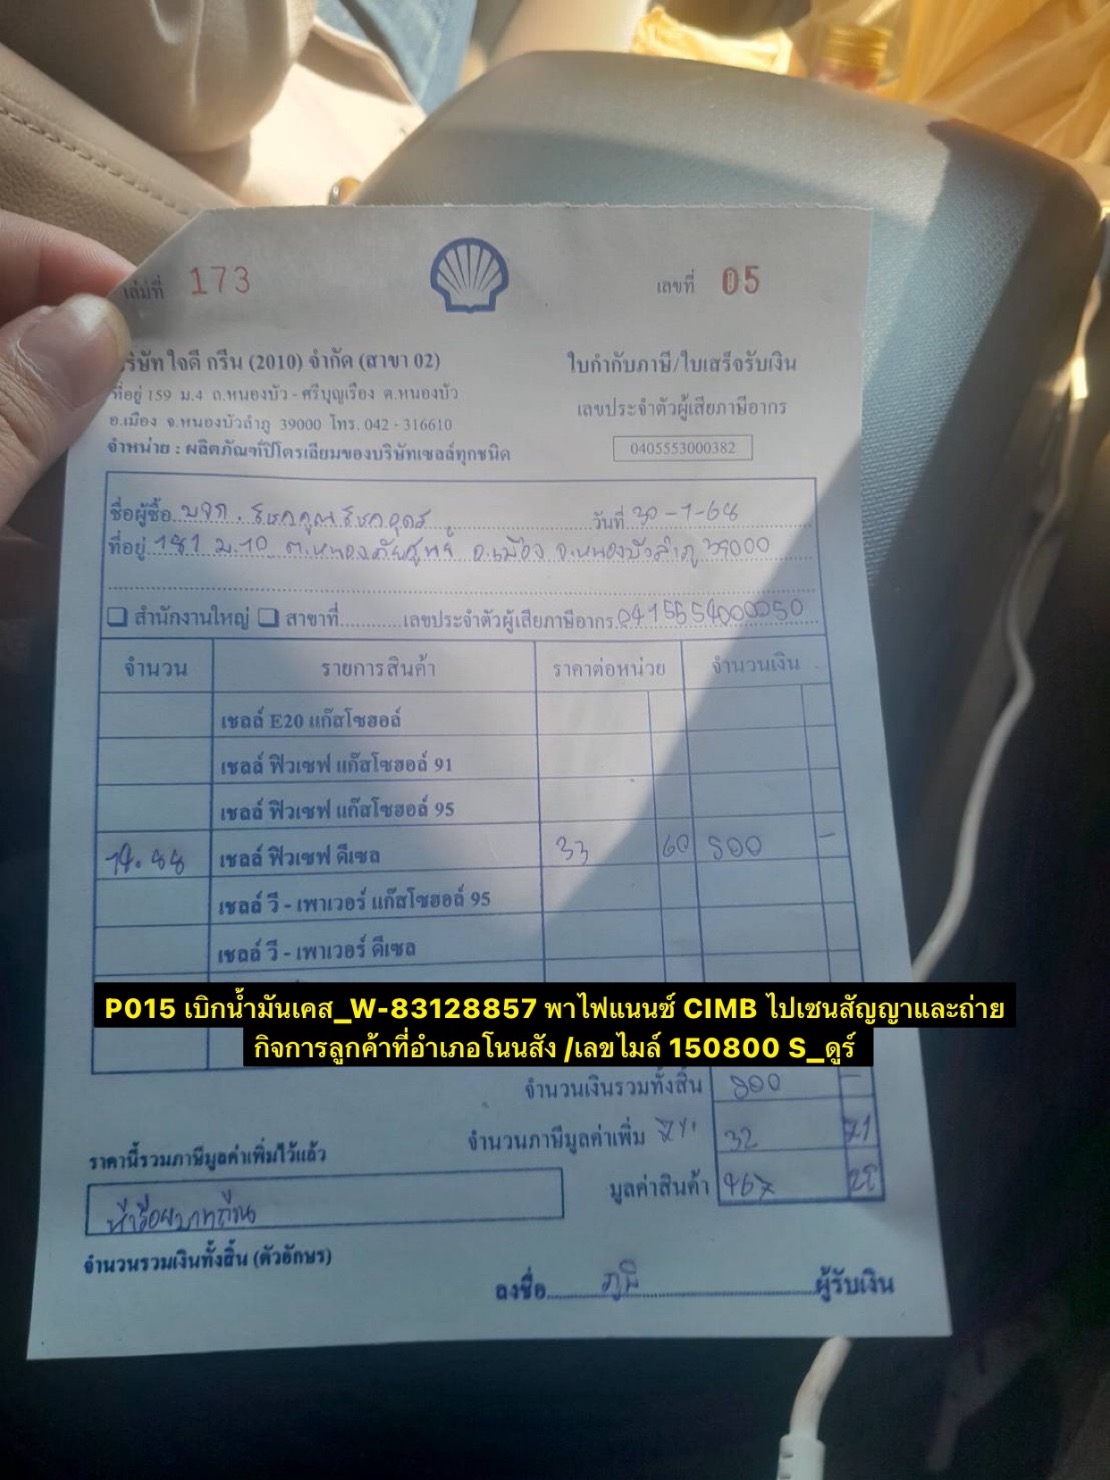 เล่มที่ 173
เลขที่ 05
บริษัท ใจดี กรีน (2010) จำกัด (สาขา 02)
ใบกำกับภาษี/ใบเสร็จรับเงิน
ที่อยู่ 159 ม.4 ถ.หนองบัว - ศรีบุญเรือง ต.หนองบัว
เลขประจำตัวผู้เสียภาษีอากร
อ.เมือง จ.หนองบัวลำภู 39000 โทร. 042 - 316610
0405553000382
จำหน่าย : ผลิตภัณฑ์ปิโตรเลียมของบริษัทเชลล์ทุกชนิด
ชื่อผู้ซื้อ บจก. โชคคูณโชคอุดร วันที่ 30-1-68
ที่อยู่ 181 ม.10 ต.หนองภัยศูนย์ อ.เมือง จ.หนองบัวลำภู 39000
สำนักงานใหญ่ สาขาที่ เลขประจำตัวผู้เสียภาษีอากร 0415554000050
จำนวน รายการสินค้า ราคาต่อหน่วย จำนวนเงิน
เชลล์ E20 แก๊สโซฮอล์
เชลล์ ฟิวเซฟ แก๊สโซฮอล์ 91
เชลล์ ฟิวเซฟ แก๊สโซฮอล์ 95
14.88 เชลล์ ฟิวเซฟ ดีเซล 33 60 500 -
เชลล์ วี - เพาเวอร์ แก๊สโซฮอล์ 95
เชลล์ วี - เพาเวอร์ ดีเซล
P015 เบิกน้ำมันเคส_W-83128857 พาไฟแนนซ์ CIMB ไปเซนสัญญาและถ่าย
กิจการลูกค้าที่อำเภอโนนสัง /เลขไมล์ 150800 S_ดูร์
จำนวนเงินรวมทั้งสิ้น 500 -
จำนวนภาษีมูลค่าเพิ่ม 7% 32 71
ราคานี้รวมภาษีมูลค่าเพิ่มไว้แล้ว
มูลค่าสินค้า 467 29
ห้าร้อยบาทถ้วน
จำนวนรวมเงินทั้งสิ้น (ตัวอักษร)
ลงชื่อ ผู้รับเงิน